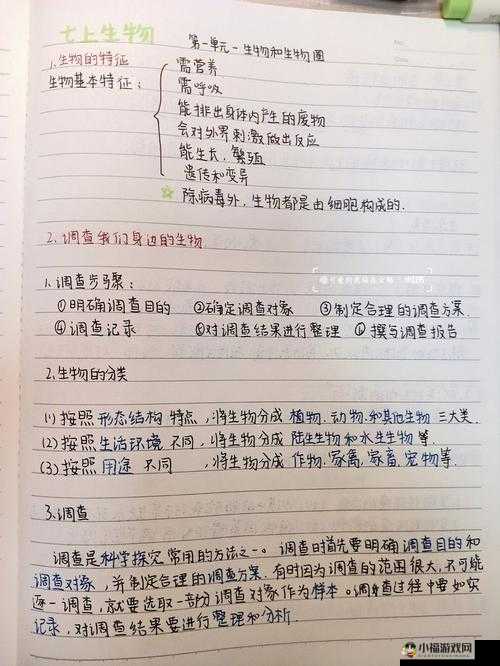 七上生物
第一单元-生物和生物圈
1.生物的特征
生物基本特征:
需营养
需呼吸
能排出身体内产生的废物
会对外界刺激做出反应
能生长,繁殖
遗传和变异
除病毒外,生物都是由细胞构成的.
2.调查我们身边的生物
1.调查步骤:
①明确调查目的 ②确定调查对象 ③制定合理的调查方案.
④调查记录 ⑤对调查结果进行整理 ⑥撰写调查报告
2.生物的分类
(1)按照形态结构特点,将生物分成植物.动物.和其他生物三大类.
(2)按照生活环境不同,将生物分成陆生生物和水生生物等.
(3)按照用途不同,将生物分成作物.家禽.家畜.宠物等.
3.调查
调查是科学探究常用的方法之一。调查时首先要明确调查目的和
调查对象,并制定合理的调查方案.有时因为调查的范围很大,不可能
逐一调查,就要选取一部分调查对象作为样本。调查过程中要如实
记录,对调查结果要进行整理和分析.
小福游戏网